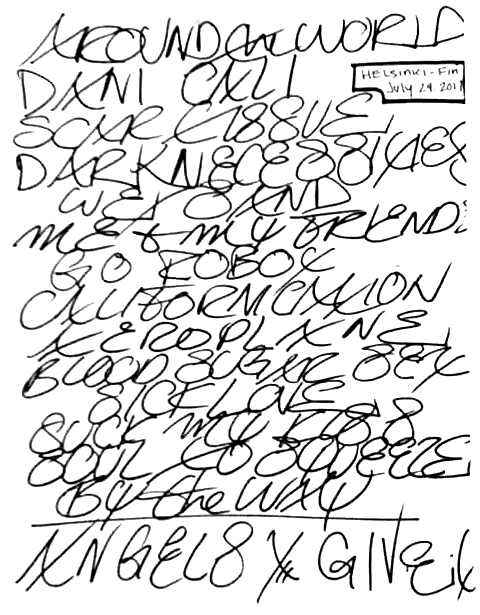 AROUND the WORLD
DANI CALI
HELSINKI-Fin
July 29. 201
SCAR TISSUE
DARK NECESSITIES
WET SAND
ME & MY FRIENDS
GO ROBOT
CALIFORNICATION
AEROPLANE
BLOOD SUGAR SEX
SICK LOVE
SUCK MY KISS
SOUL TO SQUEEZE
BY the WAY
ANGELS X GIVE it